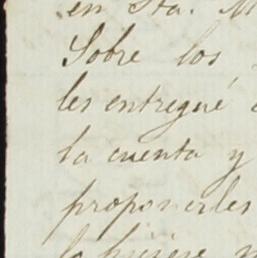 en Sta. M
Sobre los
les entregué
la cuenta y
proponerles
lo hiciese